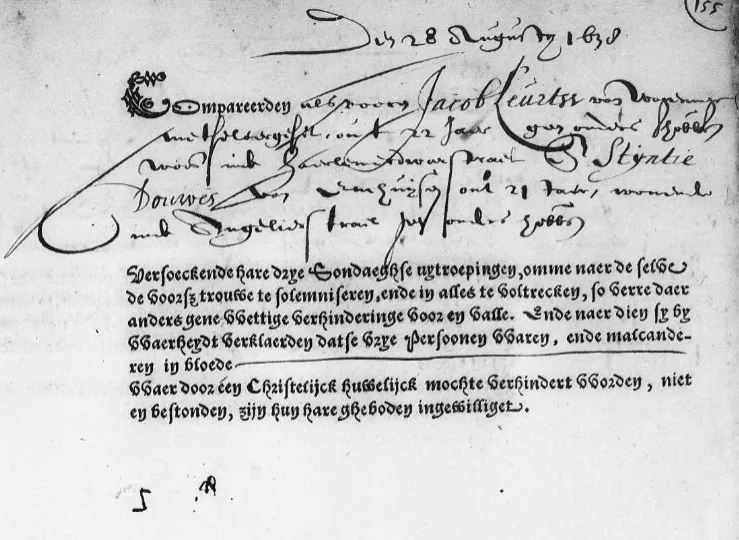 155
Den 28 Augusty 1638
Compareerden als vooren Jacob Leurtsz van
metselaergesel, out 22 Jaer geen ouders hebben
woon. inde Haerlemerdwarsstraet & Styntie
Douwes van Enchuysen out 21 Jaer, wonende
inde Angeliers straet geen ouders hebben
Versoeckende hare drye Sondaeghse uytroepingen, omme naer de selve
de voorsz trouwe te solemniseren, ende in alles te voltrecken, so verre daer
anders gene VVettige verhinderinge voor en valle. Ende naer dien sy by
VVaerheydt verklaerden datse vrye Persoonen VVaren, ende malcande-
ren in bloede
VVaer door een Christelijck huwelijck mochte verhindert VVorden, niet
en bestonden, zijn hun hare gheboden ingewilliget.